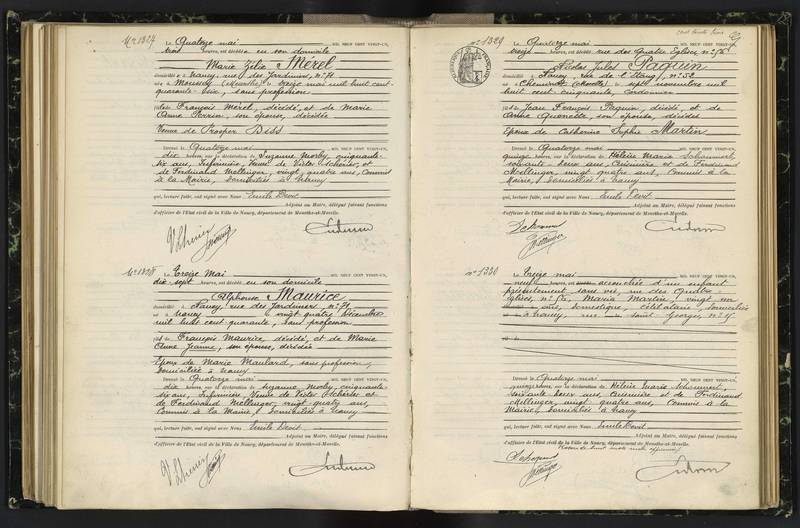 N° 1327
Le Quatorze mai MIL NEUF CENT VINGT-UN,
trois heures, est décédée en son domicile
Marie Zélie Mérel
domiciliée à Nancy, rue des Jardiniers, n° 71
née à Moussey (Meurthe) le treize mai mil huit cent
quarante- sans profession
fille de François Mérel, décédé, et de Marie
Anne Perrin, son épouse, décédée
Veuve de Prosper Diss
Dressé le Quatorze mai MIL NEUF CENT VINGT-UN,
dix heures, sur la déclaration de Suzanne cinquante-
six ans, Infirmière, Veuve de Victor
et de Ferdinand Mellinger, vingt quatre ans, Commis
à la Mairie, domiciliés à Nancy
qui, lecture faite, ont signé avec Nous Emile Devit
Adjoint au Maire, délégué faisant fonctions
d'officier de l'État civil de la Ville de Nancy, département de Meurthe-et-Moselle.
N° 1328
Le Treize Mai MIL NEUF CENT VINGT-UN,
dix-sept heures, est décédé en son domicile
Alphonse Maurice
domicilié à Nancy, rue des Jardiniers, n° 71
né à Nancy le vingt quatre Décembre
mil huit cent quarante, sans profession
fils de François Maurice, décédé, et de Marie
Anne Jeanne, son épouse, décédée
Epoux de Marie Maulard, sans profession,
domiciliée à Nancy
Dressé le Quatorze mai MIL NEUF CENT VINGT-UN,
dix heures, sur la déclaration de Suzanne cinquante-
six ans, Infirmière, Veuve de Victor et
de Ferdinand Mellinger, vingt-quatre ans,
Commis à la Mairie, domiciliés à Nancy
qui, lecture faite, ont signé avec Nous Emile Devit
Adjoint au Maire, délégué faisant fonctions
d'officier de l'État civil de la Ville de Nancy, département de Meurthe-et-Moselle.
n° 1329
Le Quatorze mai MIL NEUF CENT VINGT-UN,
treize heures, est décédé rue des Quatre Eglises, n° 56
Nicolas Jules Paquin
domicilié à Nancy, rue de l'Etang, n° 52
né à Cheminot (Moselle) le sept novembre mil
huit cent cinquante, Cordonnier
fils de Jean François Paquin, décédé, et de
Anne son épouse, décédée
Epoux de Catherine Sophie Martin
Dressé le Quatorze mai MIL NEUF CENT VINGT-UN,
quinze heures, sur la déclaration de Hélène Marie
soixante ans, Cuisinière et de Ferdinand
Mellinger, vingt quatre ans, Commis à la
Mairie, domiciliés à Nancy
qui, lecture faite, ont signé avec Nous Emile Devit
Adjoint au Maire, délégué faisant fonctions
d'officier de l'État civil de la Ville de Nancy, département de Meurthe-et-Moselle.
n° 1330
Le Treize mai MIL NEUF CENT VINGT-UN,
neuf heures, est accouchée d'un enfant
présentement sans vie, rue des Quatre
Eglises, n° 56, Marie Martin, vingt
ans, domestique, célibataire, domiciliée
à Nancy, rue Saint Georges, n°
Dressé le Quatorze mai MIL NEUF CENT VINGT-UN,
quinze heures, sur la déclaration de Hélène Marie
soixante ans, Cuisinière et de Ferdinand
Mellinger, vingt quatre ans, Commis à la
Mairie, domiciliés à Nancy
qui, lecture faite, ont signé avec Nous Emile Devit
Adjoint au Maire, délégué faisant fonctions
d'officier de l'État civil de la Ville de Nancy, département de Meurthe-et-Moselle.